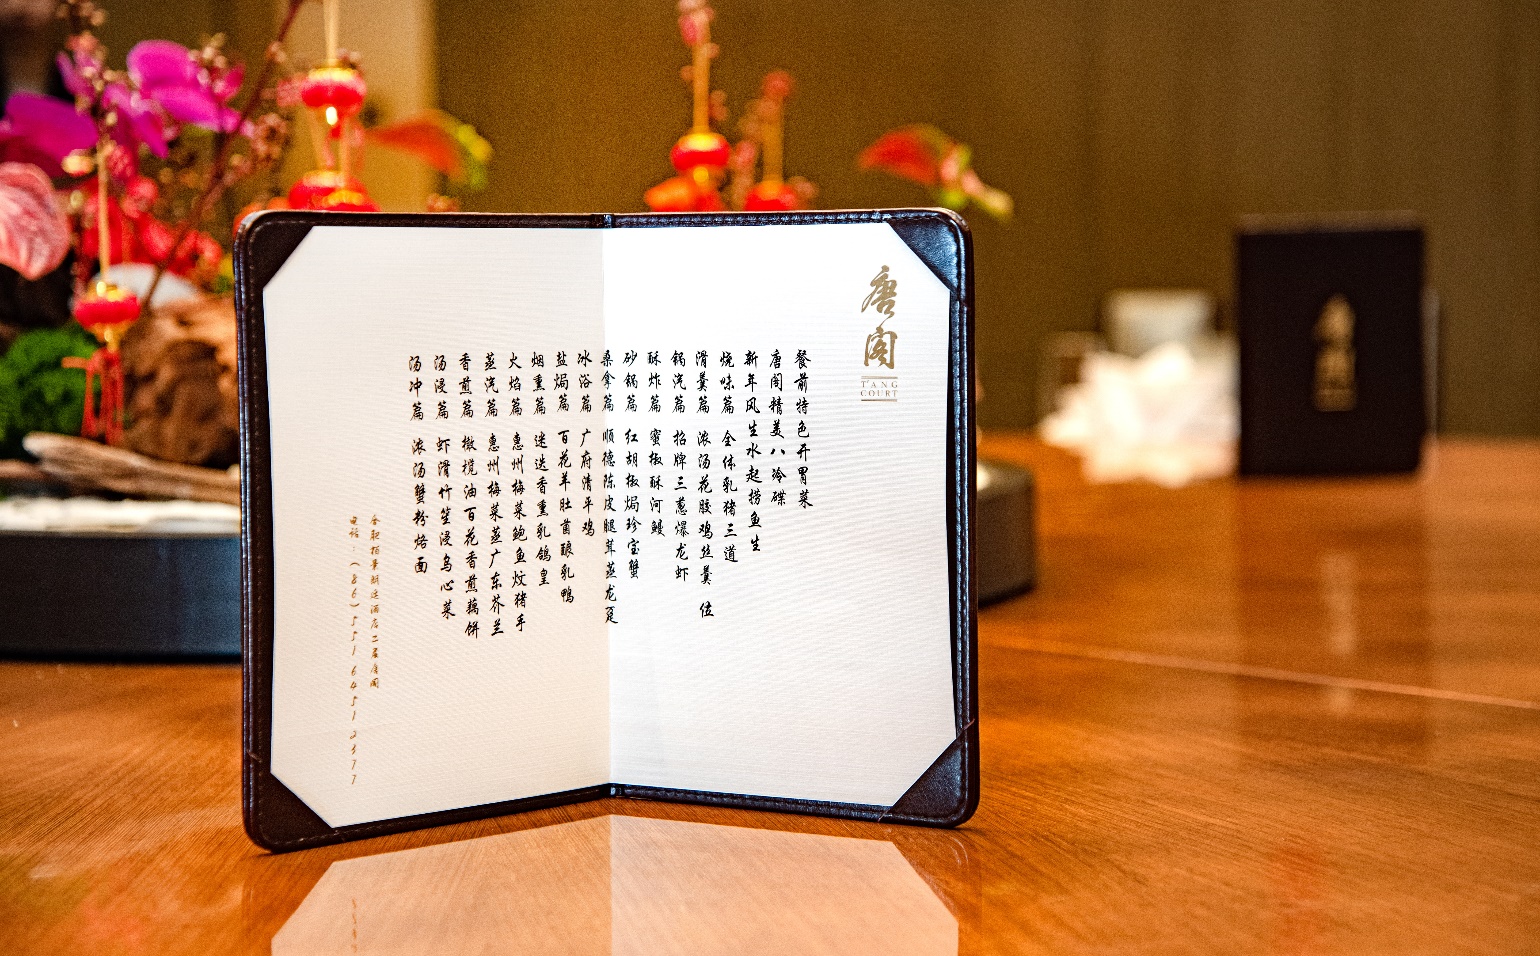 唐阁
T'ANG
COURT
餐前特色开胃菜
唐阁精美八冷碟
新年风生水起捞鱼生
烧味篇 全体乳猪三道
滑羹篇 浓汤花胶鸡丝羹 位
锅汽篇 招牌三葱爆龙虾
酥炸篇 蜜椒酥河鳗
砂锅篇 红胡椒焗珍宝蟹
桑拿篇 顺德陈皮腿茸蒸龙趸
冰浴篇 广府清平鸡
盐焗篇 百花羊肚菌酿乳鸭
烟熏篇 迷迭香熏乳鸽皇
火焰篇 惠州梅菜鲍鱼炆猪手
蒸汽篇 惠州梅菜蒸广东芥兰
香煎篇 橄榄油百花香煎藕饼
汤浸篇 虾滑竹笙浸乌心菜
汤冲篇 浓汤蟹粉烙面
合肥栢景朗廷酒店二层唐阁
电话：(86) 551 6451 2377